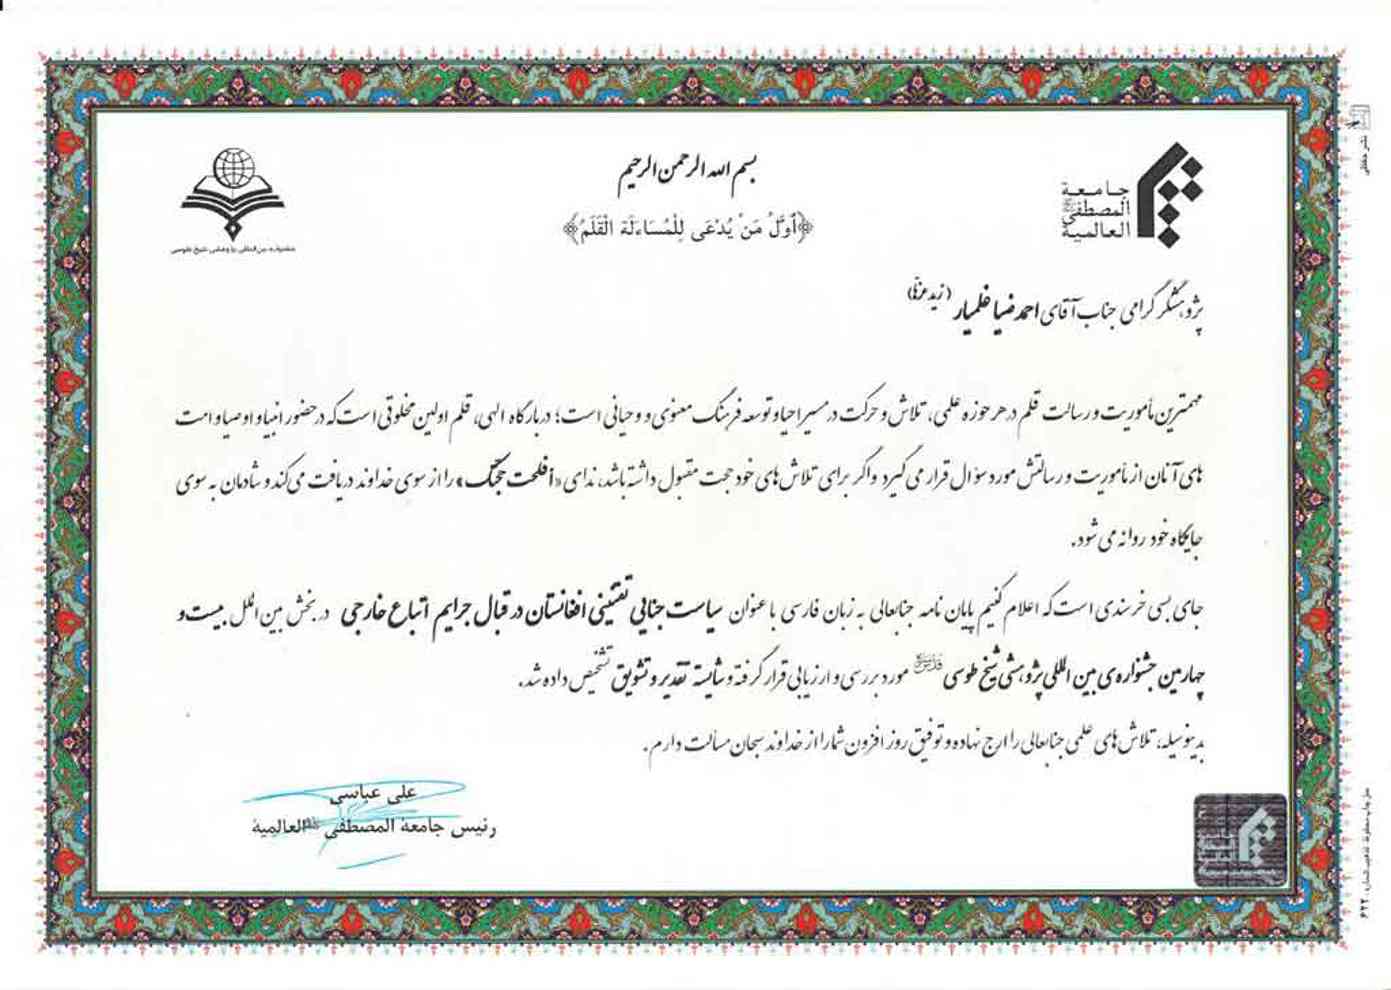 بسم الله الرحمن الرحیم
﴿أَوَّلُ مَنْ يُدْعَى لِلْمُسَاءَلَةِ الْقَلَمُ﴾
جامعة
المصطفی
العالمیة
جشنواره بین‌المللی پژوهشی شیخ طوسی
پژوهشگر گرامی جناب آقای احمد ضیا غلمیار (زید عزه)
مهمترین مأموریت و رسالت قلم در هر حوزه علمی، تلاش و حرکت در مسیر احیا و توسعه فرهنگ معنوی و وحیانی است؛ در بارگاه الهی، قلم اولین مخلوقی است که در حضور انبیا و اوصیا و امت
های آنان از مأموریت و رسالتش مورد سؤال قرار می گیرد و اگر برای تلاش های خود حجت مقبول داشته باشد، ندای «أفلحت حجتک» را از سوی خداوند دریافت می کند و شادمان به سوی
جایگاه خود روانه می شود.
جای بسی خرسندی است که اعلام کنیم پایان نامه جنابعالی به زبان فارسی با عنوان سیاست جنایی تقنینی افغانستان در قبال جرایم اتباع خارجی در بخش بین الملل بیست و
چهارمین جشنواره‌ی بین المللی پژوهشی شیخ طوسی مورد بررسی و ارزیابی قرار گرفته و شایسته تقدیر و تشویق تشخیص داده شد.
بدینوسیله، تلاش های علمی جنابعالی را ارج نهاده و توفیق روز افزون شما را از خداوند سبحان مسألت دارم.
علی عباسی
رئیس جامعة المصطفی العالمیة